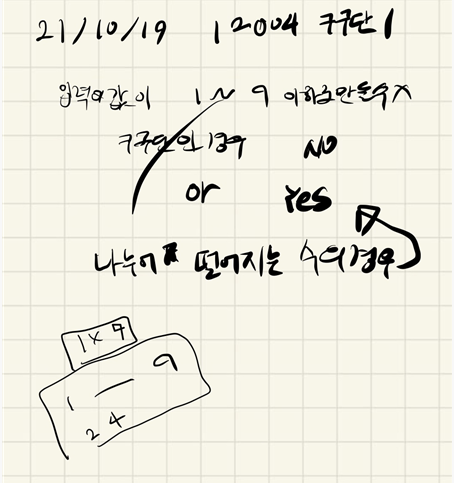 21/10/19 12004 구구단 1
입력의 값이 1~9 이하로 만든 수 X
구구단인 경우 NO
or Yes
나누어 떨어지는 수의 경우
1×9
1 — 9
2 4